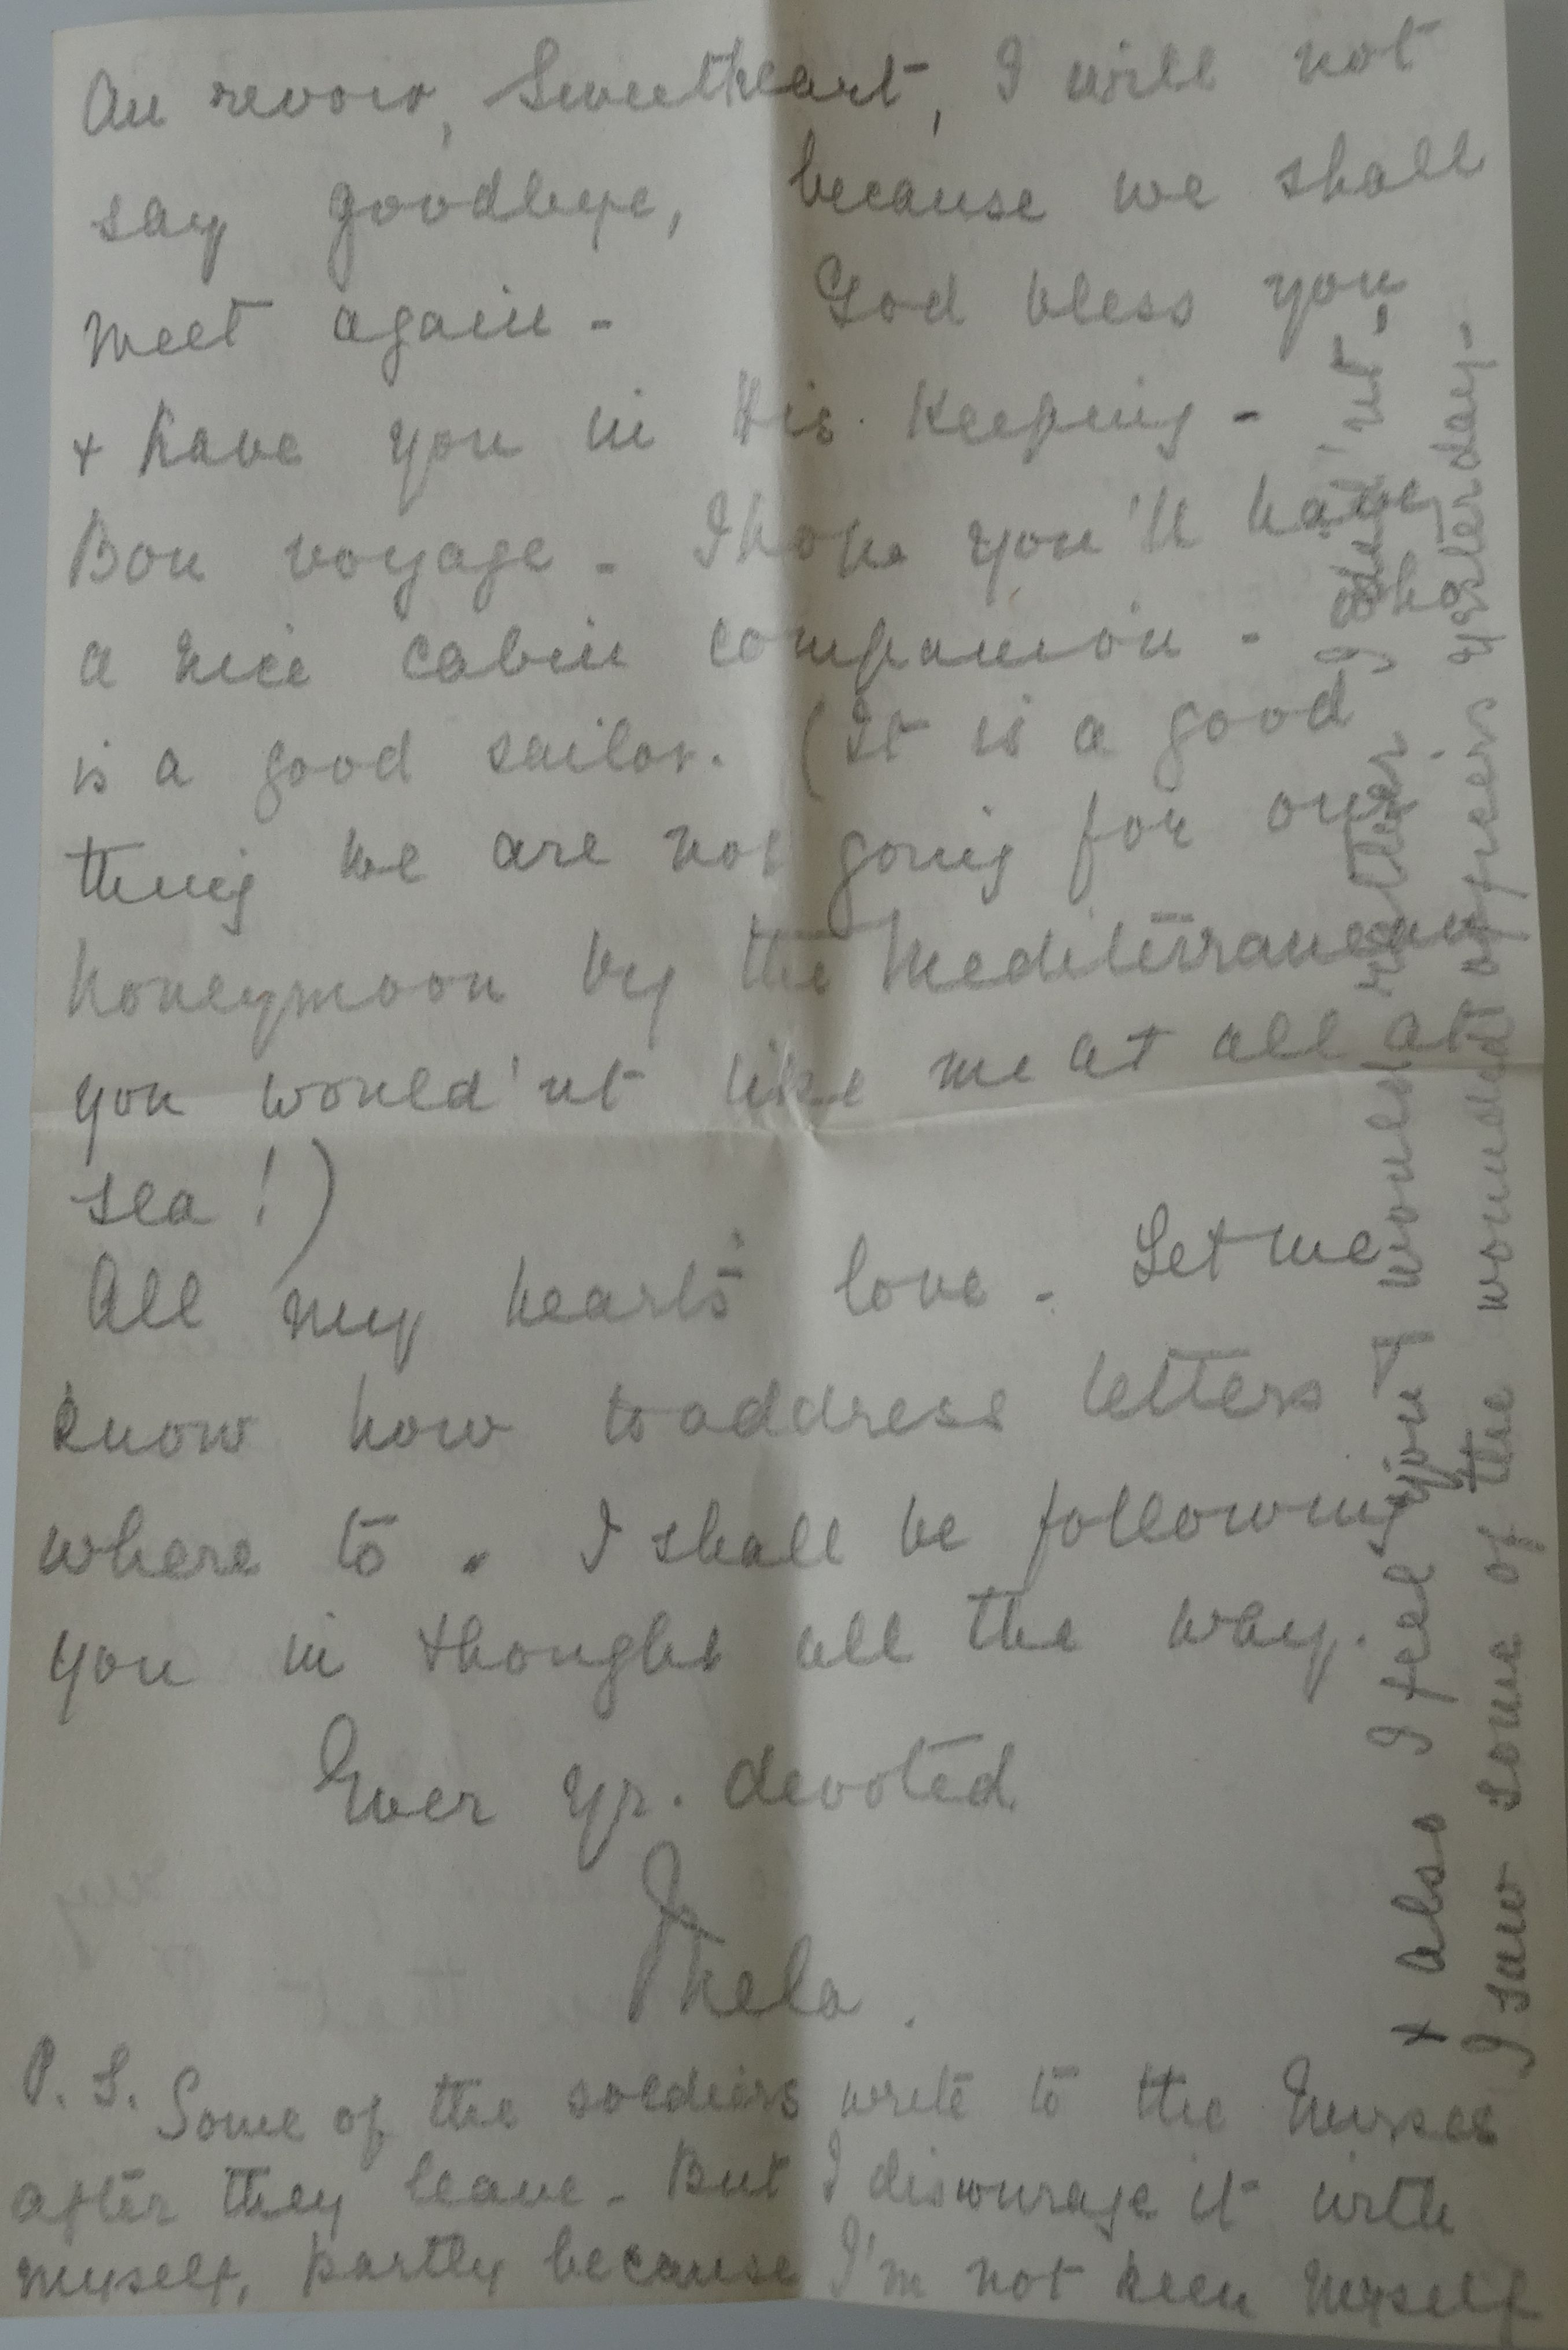 Au revoir, Sweetheart, I will not
say goodbye, because we shall
meet again - God bless you
+ have you in His keeping -
Bon voyage - I hope you'll have
a nice cabin companion - who
is a good sailor. (It is a good
thing we are not going for our
honeymoon by the Mediterranean
you would'nt like me at all at
sea!)
All my heart's love - Let me
know how to address letters +
where to. I shall be following
you in thought all the way.
Ever yr. devoted
Thela.
P.S. Some of the soldiers write to the Nurses
after they leave - But I discourage it with
myself, partly because I'm not keen myself
+ also I feel you would rather I did'nt.
I saw some of the wounded officers yesterday -